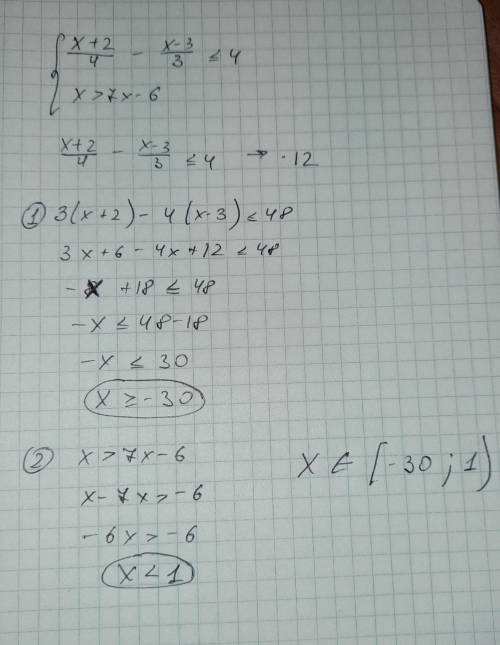 { x+2/4 - x-3/3 ≤ 4
x > 7x - 6
x+2/4 - x-3/3 ≤ 4 → ·12
① 3(x+2) - 4(x-3) ≤ 48
3x + 6 - 4x + 12 ≤ 48
-x + 18 ≤ 48
-x ≤ 48 - 18
-x ≤ 30
x ≥ -30
② x > 7x - 6
x - 7x > -6
-6x > -6
x < 1
X ∈ [-30 ; 1)